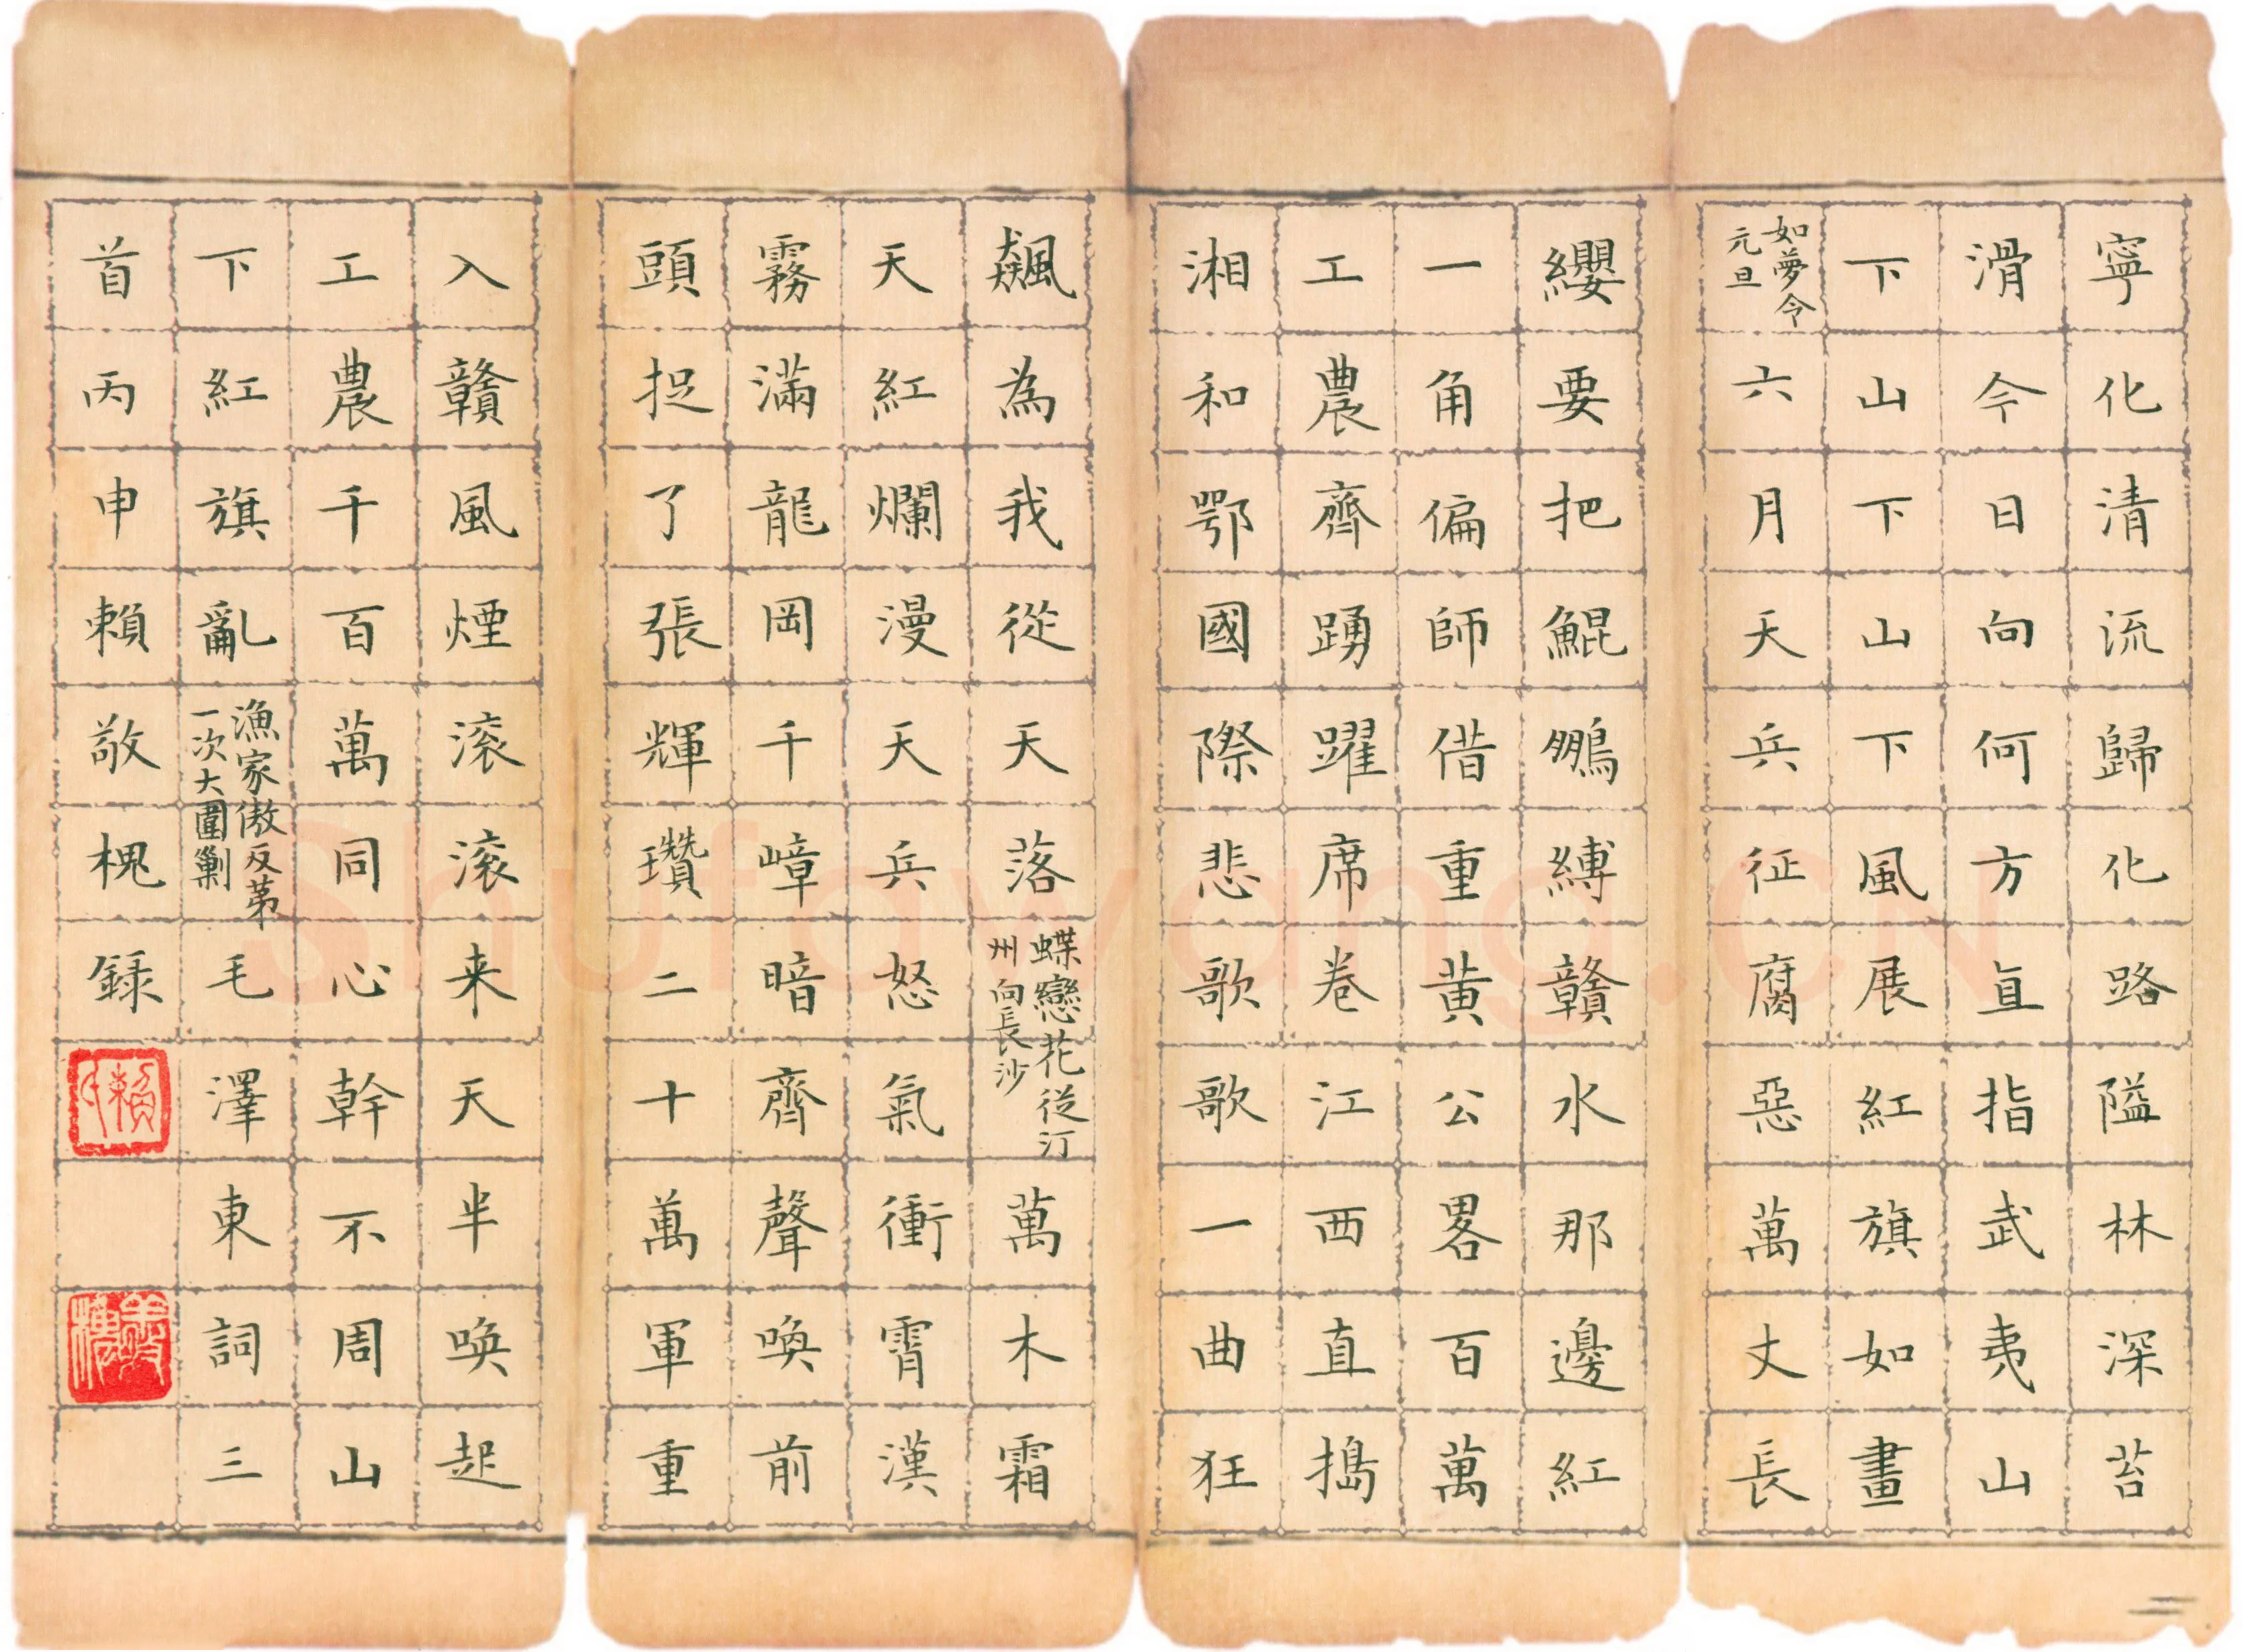 寧化清流歸化路隘林深苔
滑今日向何方直指武夷山
下山下山下風展紅旗如畫
如夢令
元旦
六月天兵征腐惡萬丈長
纓要把鯤鵬縛贛水那邊紅
一角偏師借重黄公畧百萬
工農齊踴躍席卷江西直搗
湘和鄂國際悲歌歌一曲狂
飆為我從天落
蝶戀花從汀
州向長沙
萬木霜
天紅爛漫天兵怒氣衝霄漢
霧滿龍岡千嶂暗齊聲喚前
頭捉了張輝瓚二十萬軍重
入贛風煙滚滚来天半喚起
工農千百萬同心幹不周山
下紅旗亂
漁家傲反第
一次大圍剿
毛澤東詞三
首丙申賴敬槐録
Shufawang.CN